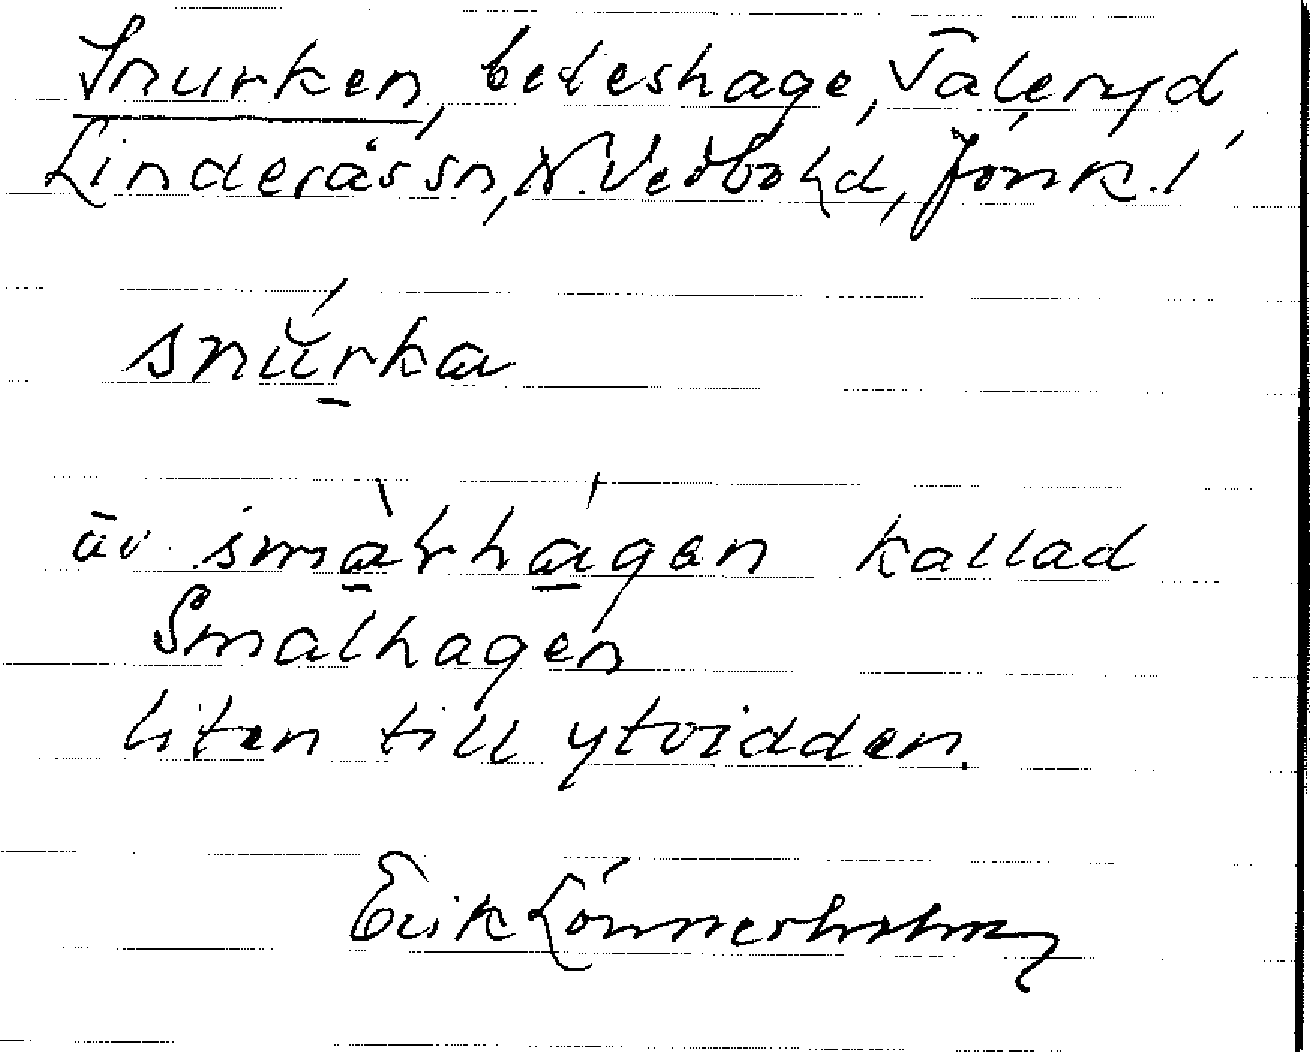 Snurken, beteshage, Taleryd
Linderås sn, N. Vedbo hd, Jönk. l
snŭrka
äv. smàlhágen kallad
Smalhagen
liten till ytvidden.
Erik Lönnerholm